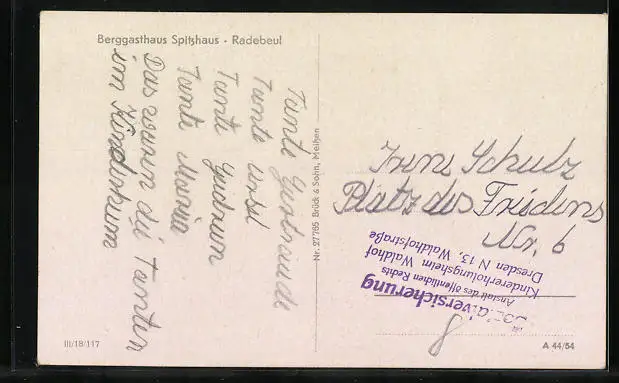 Berggasthaus Spitzhaus · Radebeul
Tante Gertraude
Tante Ursl
Tante Gudrun
Tante Maria
Das waren die Tanten
im Kinderkurn
Nr. 27785 Brück & Sohn, Meißen
Irene Schulz
Platz des Friedens
Nr. 6
Sozialversicherung
Anstalt des öffentlichen Rechts
Kindererholungsheim Waldhof
Dresden N 13, Waldhofstraße
8
III/18/117
A 44/54